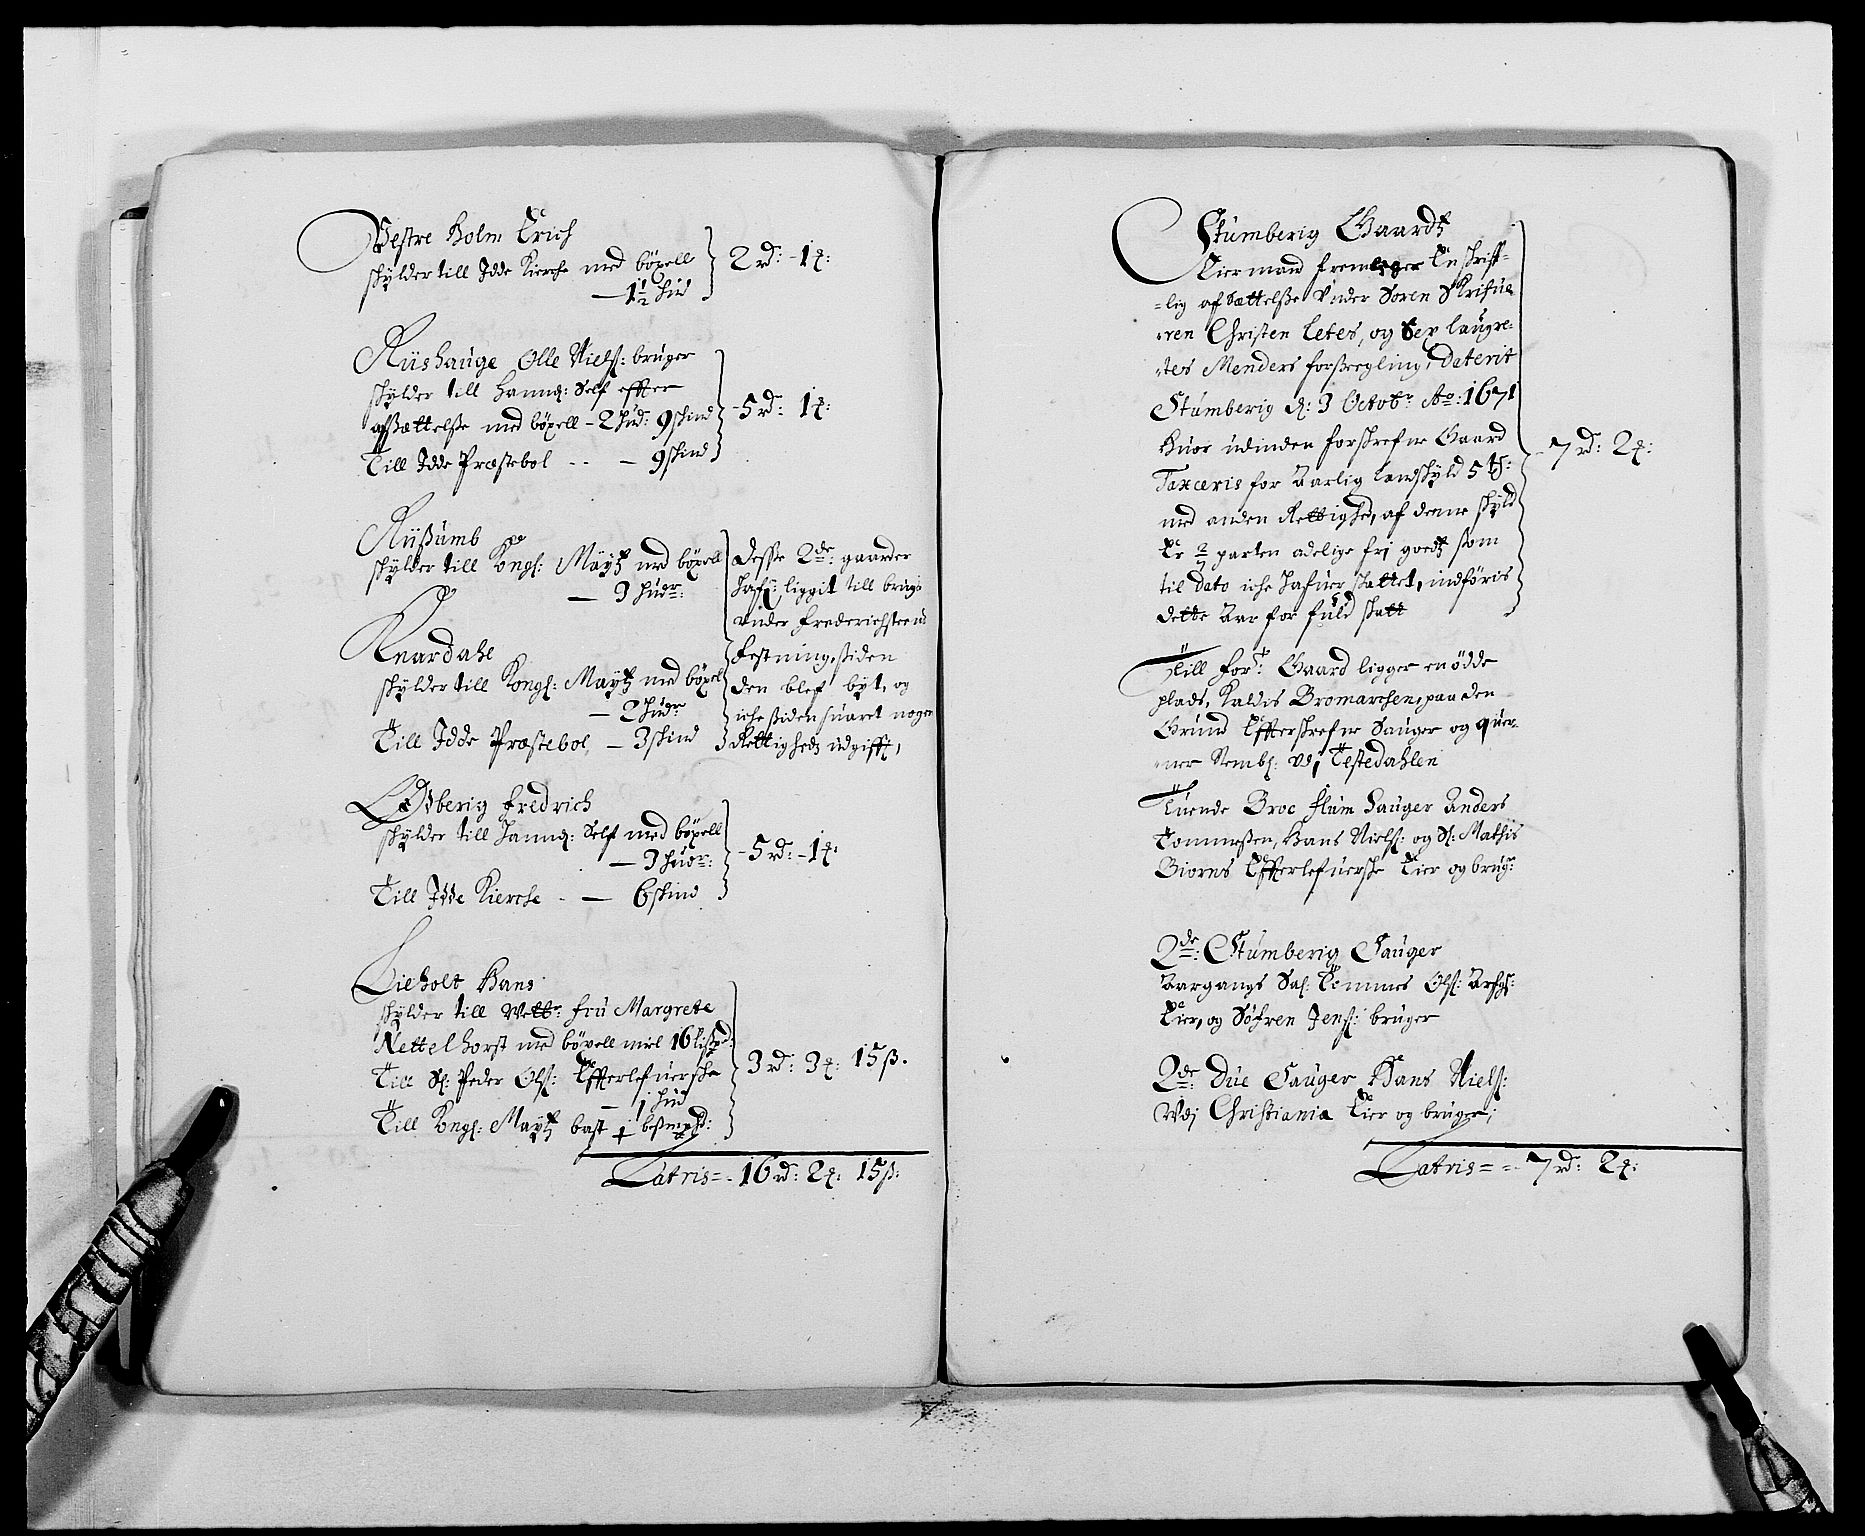 Vestre Holm Erich
skylder till Idde Kierche med böxell
— 1½ hud
2 rd: - 1 ꝗ:
Riishauge Olle Niels: bruger
skylder till hannq: Self effter
afsættelsse med böxell - 2 hud: 9 skind
Till Idde Præstebol - - — 9 skind
- 5 rd: 1 ꝗ:
Riissumb
skylder till Kongl: Maytz med böxell
— 3 hudr:
Knardahl
skylder till Kongl: Maytz med böxel
— 2 hudr
Till Idde Præstebol, — 3 skind
Desse 2de: gaarder
hafr: liggit till brugs
under Frederichsteens
Festning, siden
den blef byt, og
iche siden suaret nogen
Rettigheds udgifft,
Ödberig Fredrich
skylder till hannq: Self med böxell
— 3 huder:
Till Idde Kierche - — 6 skind
- 5 rd: - 1 ꝗ:
Lieholt Hans
skylder till Welb: fru Margrete
Nettelhorst med böxell miel 16 lispd:
Till Sl: Peder Ols: Effterlefuersche
— 1 hud
Till Kongl: Maytz bast 1 bismpd:
3 rd: 3 ꝗ: 15 ß.
Latris = - 16 rd: 2 ꝗ: 15 ß:
Stumberig Gaardz
Eiermand fremlegger En skrifft-
=lig afsættelsse under Soren Skrifue
=ren Christen Letes, og Sex laugre-
=tes Menders forseegling, Daterit
Stumberig d: 3 Octobr: Ao: 1671
huor udinden forskrefne Gaard
Taxceris for Aarlig landskyld 5 tß:
med anden Rettighed, af denne skyld
Er 2/7 parten adelige frj goedtz som
til dato iche hafuer skattet, indföris
dette Aar for fuld skatt
- 7 rd: 2 ꝗ:
Till for: Gaard ligger en ödde
plads, Kaldis Bromarchen, paa den
Grund Effterskrefne Sauger og quer-
=ner Nembl: vdj Testedahlen
Tuende Broe flum Sauger Anders
Tommessen, Hans Niels: og Sl: Mathis
Biorns Effterlefuersche Eier og brug:
2de: Stumberig Sauger
Aargangs Sal: Tommes Ols: Arfg:
Eier, og Söfren Jens: bruger
2de Due Sauger Hans Niels:
Wdj Christiania Eier og bruger,
Latris = = - 7 rd: 2 ꝗ: